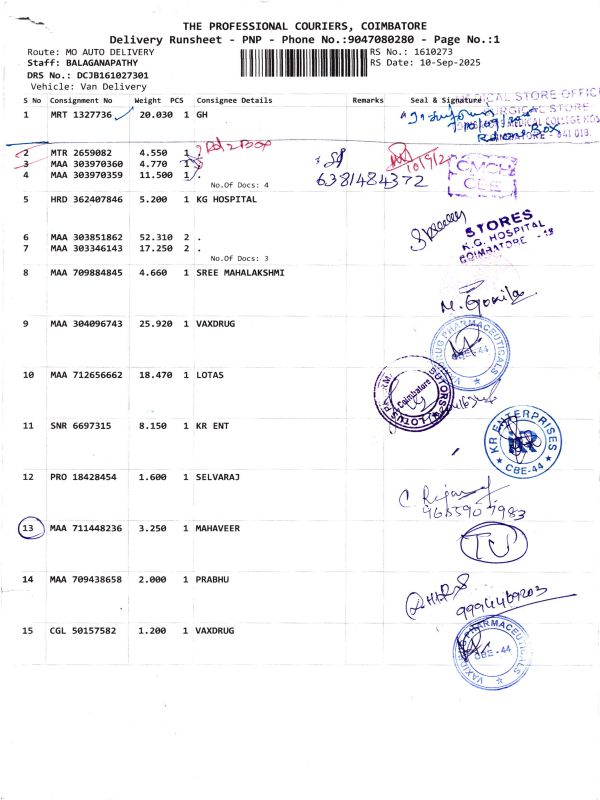 THE PROFESSIONAL COURIERS, COIMBATORE
Delivery Runsheet - PNP - Phone No.:9047080280 - Page No.:1
Route: MO AUTO DELIVERY RS No.: 1610273
Staff: BALAGANAPATHY RS Date: 10-Sep-2025
DRS No.: DCJB161027301
Vehicle: Van Delivery
S No Consignment No Weight PCS Consignee Details Remarks Seal & Signature
1 MRT 1327736 20.030 1 GH
2 MTR 2659082 4.550 1
3 MAA 303970360 4.770 1
4 MAA 303970359 11.500 1 .
No.Of Docs: 4
6381484372
CMCH
CBE
5 HRD 362407846 5.200 1 KG HOSPITAL
STORES
K.G. HOSPITAL
COIMBATORE - 18
6 MAA 303851862 52.310 2 .
7 MAA 303346143 17.250 2 .
No.Of Docs: 3
8 MAA 709884845 4.660 1 SREE MAHALAKSHMI
9 MAA 304096743 25.920 1 VAXDRUG
PHARMACEUTICALS
CBE-44
10 MAA 712656662 18.470 1 LOTAS
Coimbatore
11 SNR 6697315 8.150 1 KR ENT
KR ENTERPRISES
KR
CBE-44
12 PRO 18428454 1.600 1 SELVARAJ
9655907983
13 MAA 711448236 3.250 1 MAHAVEER
14 MAA 709438658 2.000 1 PRABHU
9994469203
15 CGL 50157582 1.200 1 VAXDRUG
PHARMACEUTICALS
CBE-44